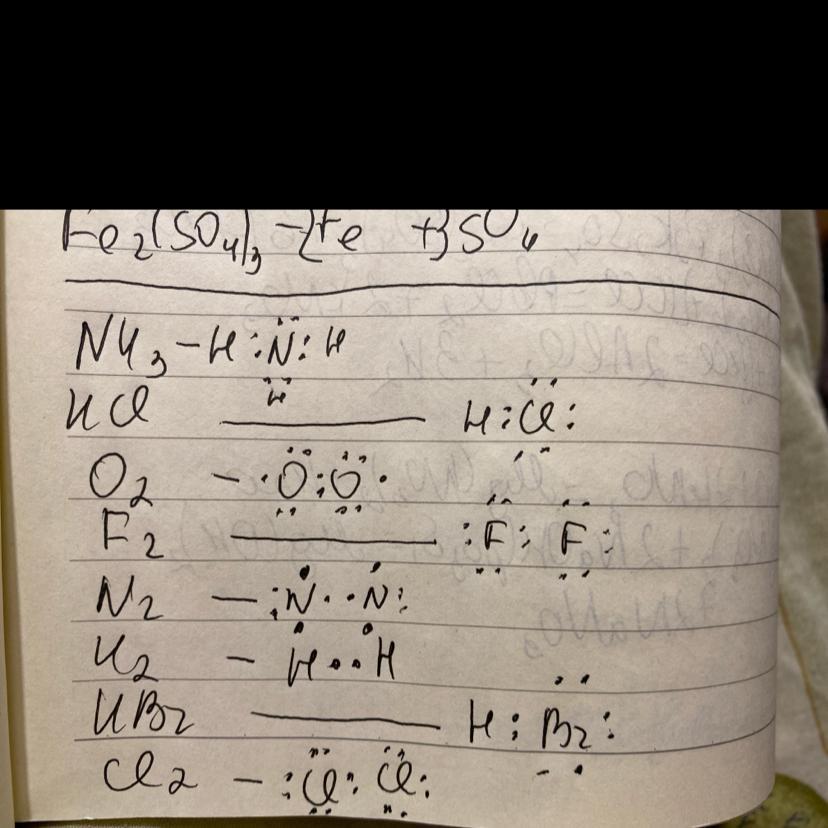 Fe₂(SO₄)₃ - 2Fe + 3SO₄
NH₃ - H :N̈: H
H
HCl — H : Cl :
O₂ - · O : O ·
F₂ — : F : F :
N₂ — : N · · N :
H₂ - H · · H
HBr — H : Br :
Cl₂ - : Cl : Cl :